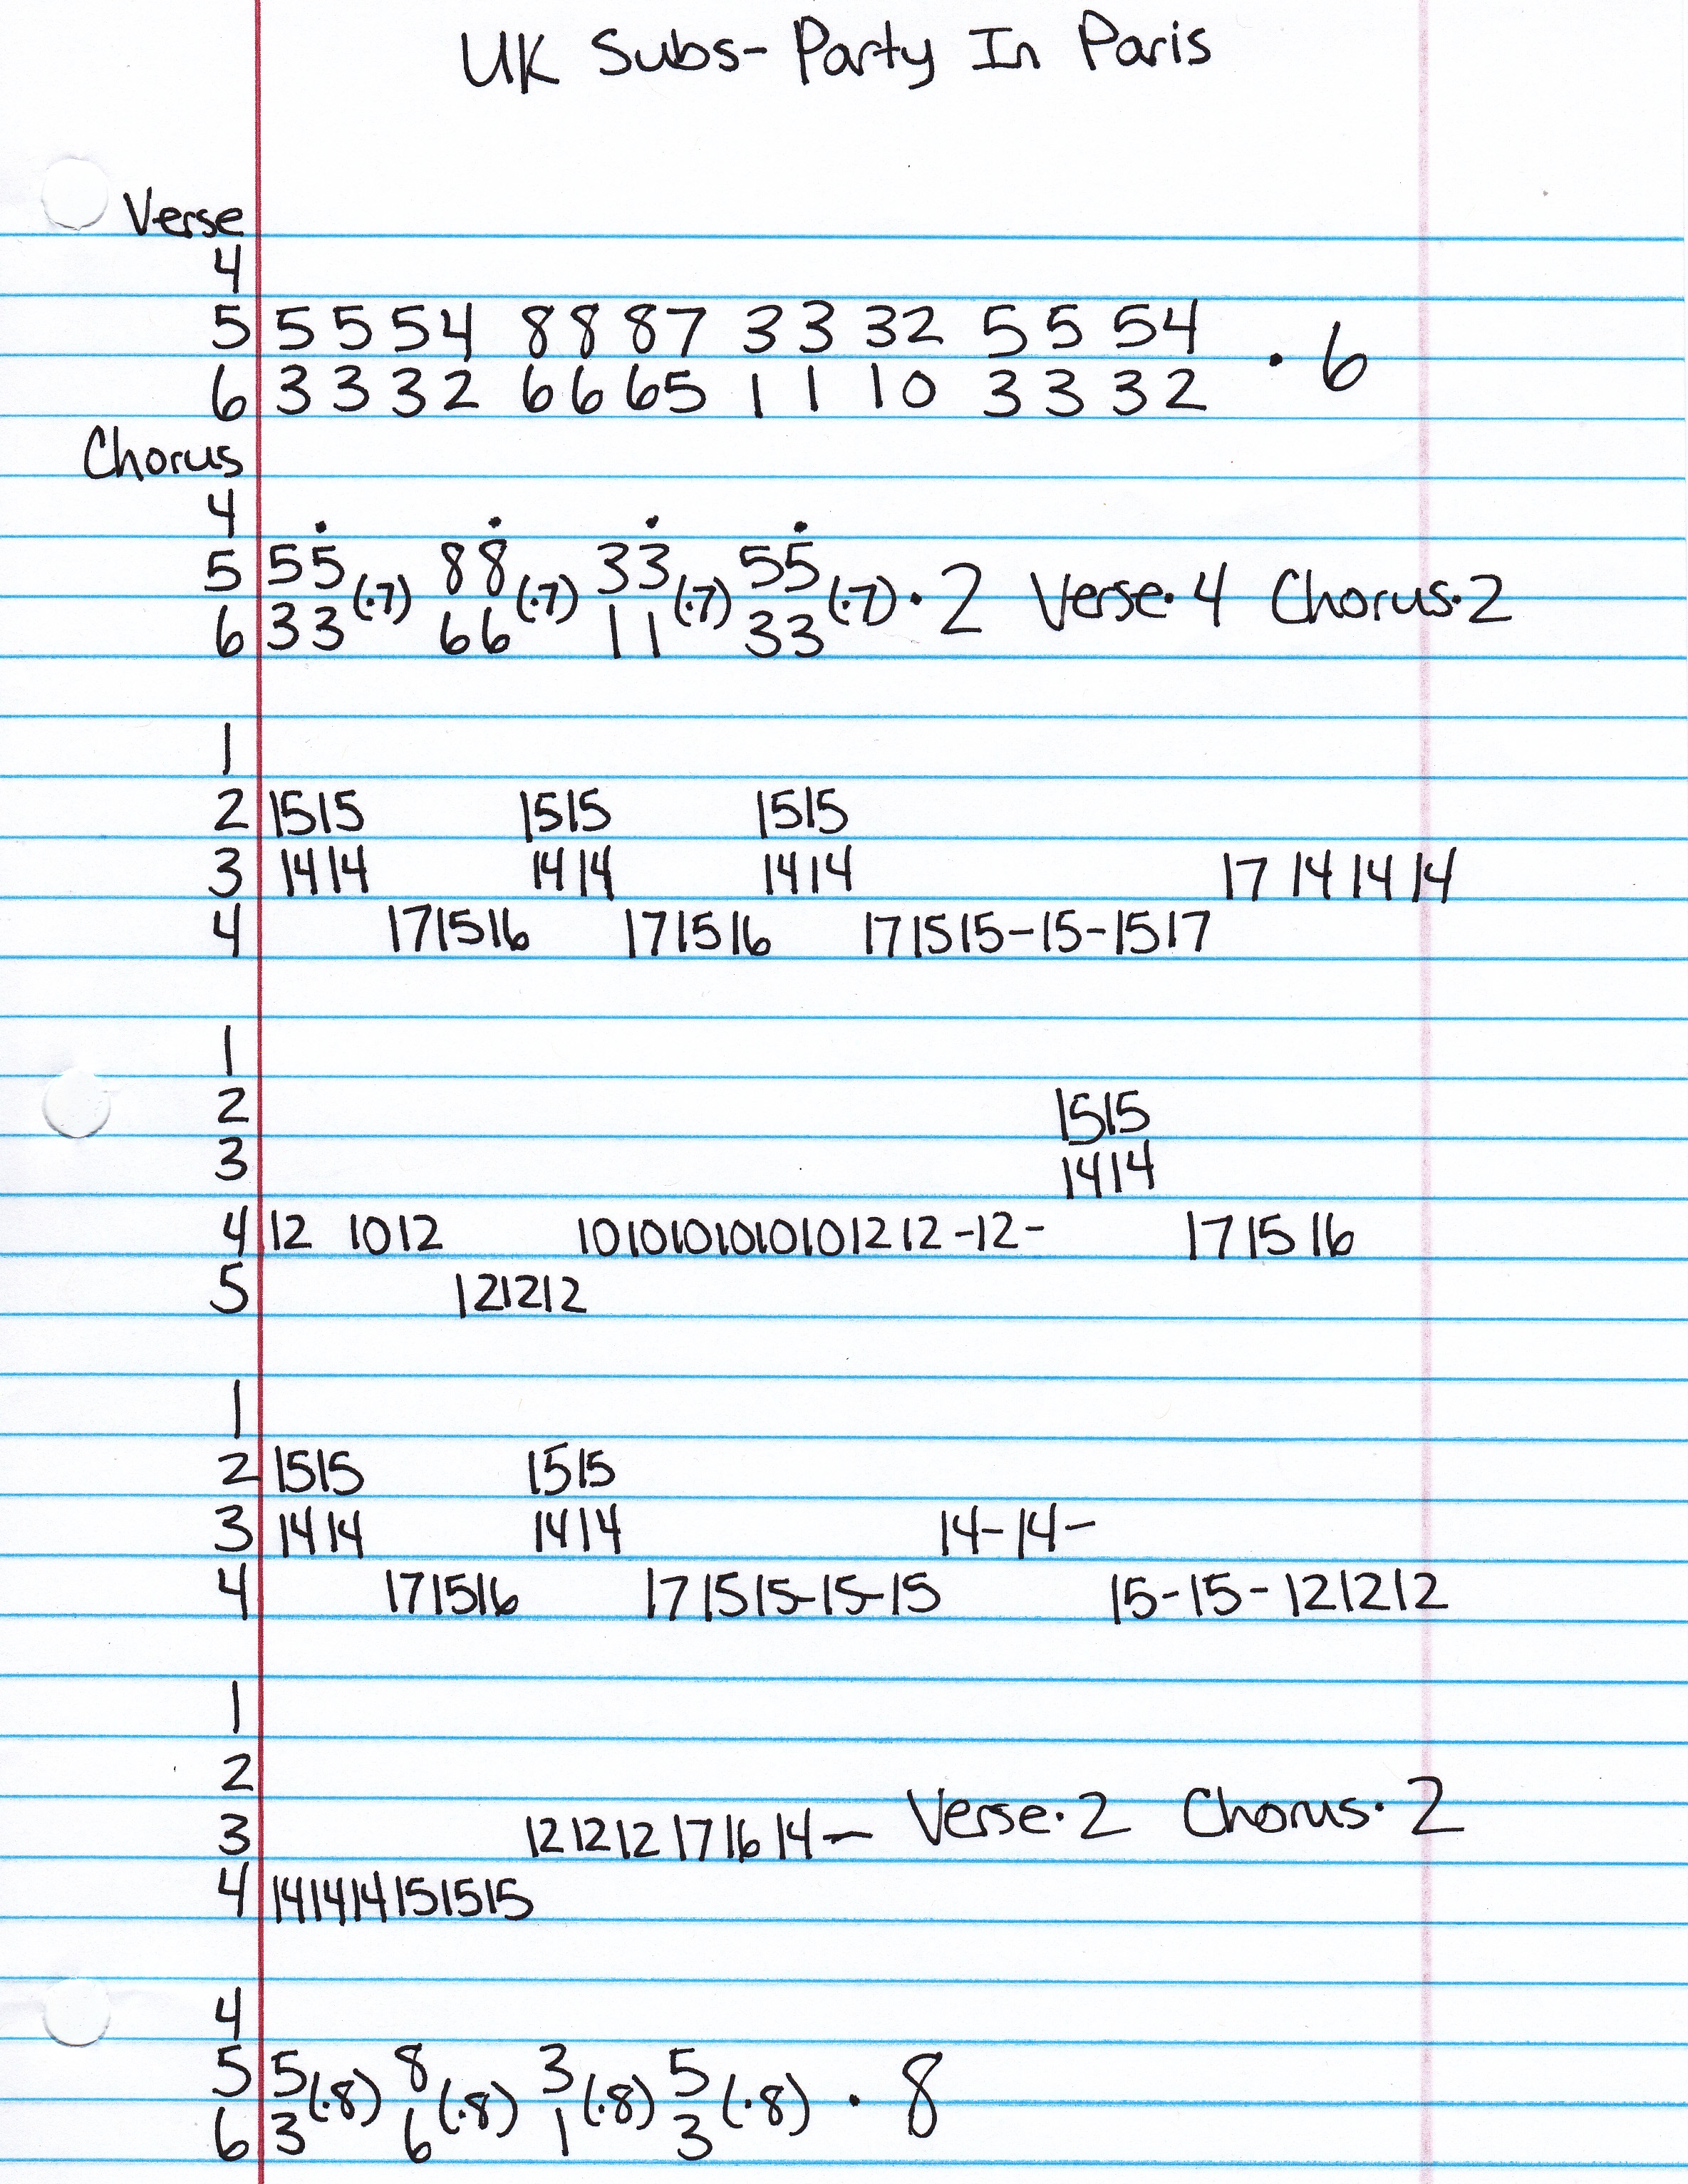 UK Subs- Party In Paris
Verse
4
5 5 5 5 4 8 8 8 7 3 3 3 2 5 5 5 4
6 3 3 3 2 6 6 6 5 1 1 1 0 3 3 3 2 · 6
Chorus
4
5 5 5 8 8 3 3 5 5
(·7) (·7) (·7) (·7) · 2 Verse· 4 Chorus· 2
6 3 3 6 6 1 1 3 3
1
2 15 15 15 15 15 15
3 14 14 14 14 14 14 17 14 14 14
4 17 15 16 17 15 16 17 15 15-15-15 17
1
2 15 15
3 14 14
4 12 10 12 10 10 10 10 10 10 12 12 -12- 17 15 16
5 12 12 12
1
2 15 15 15 15
3 14 14 14 14 14-14-
4 17 15 16 17 15 15-15-15 15-15- 12 12 12
1
2
3 12 12 12 17 16 14- Verse· 2 Chorus· 2
4 14 14 14 15 15 15
4
5 5 8 3 5
(·8) (·8) (·8) (·8) · 8
6 3 6 1 3